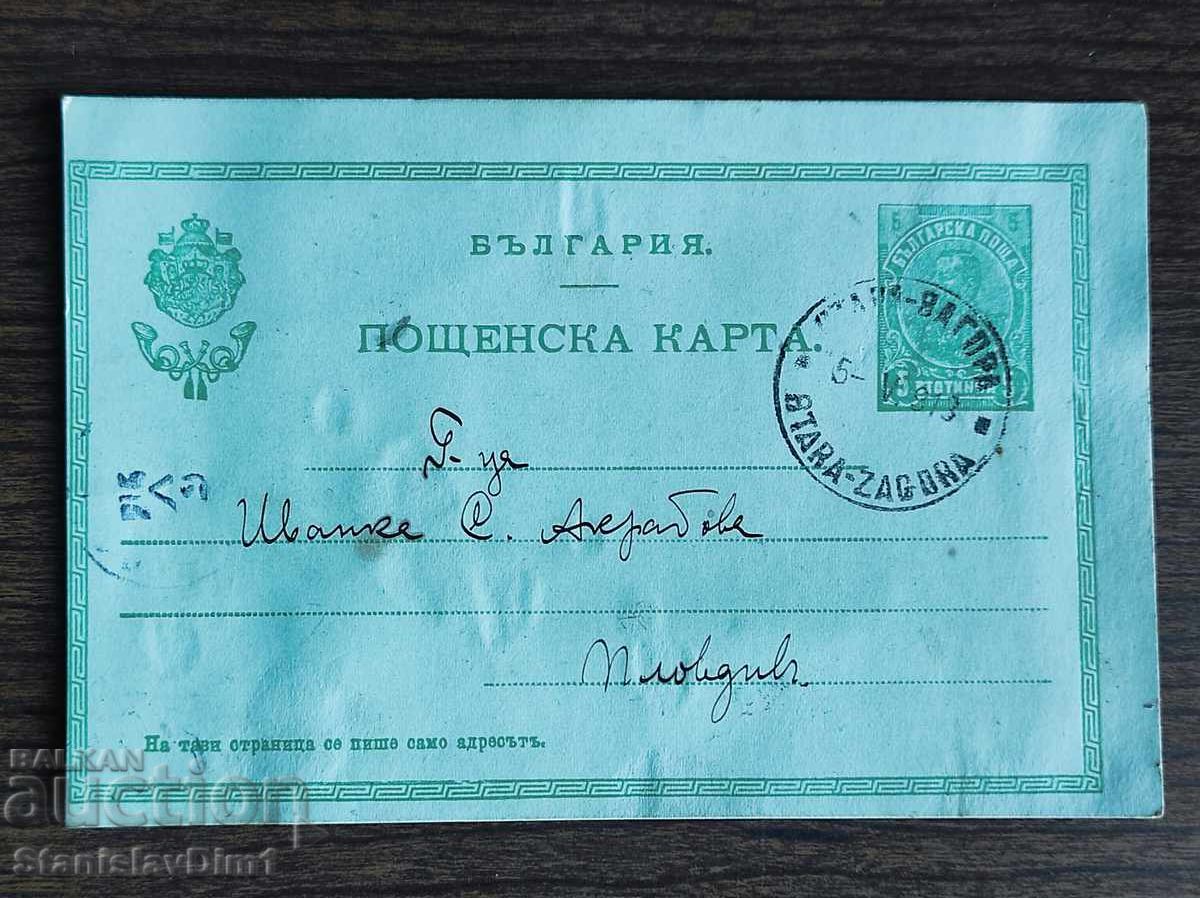 БЪЛГАРИЯ.
ПОЩЕНСКА КАРТА.
5 5
БЪЛГАРСКА ПОЩА
5 СТОТИНКИ
СТАРА-ЗАГОРА
5 V 913
STARA-ZAGORA
Г-ца
Иванке С. Акрабове
Пловдивъ.
На тази страница се пише само адресътъ.
BALKAN
auction
StanislavDim1